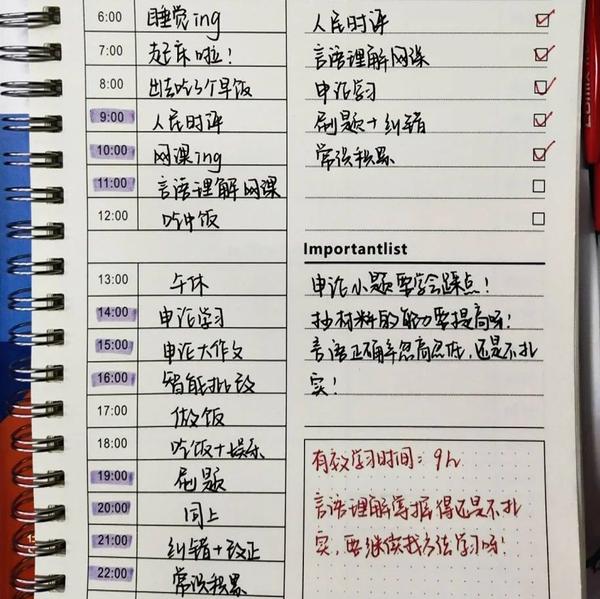 6:00 睡觉ing
7:00 起床啦！
8:00 出去吃个早饭
9:00 人民时评
10:00 网课ing
11:00 言语理解网课
12:00 吃中饭
13:00 午休
14:00 申论学习
15:00 申论大作文
16:00 智能批改
17:00 做饭
18:00 吃饭+娱乐
19:00 刷题
20:00 同上
21:00 纠错+改正
22:00 常识积累
人民时评
言语理解网课
申论学习
刷题+纠错
常识积累
Importantlist
申论小题要学会踩点！
抄材料的能力要提高呀！
言语正确率忽高忽低，还是不扎
实！
有效学习时间：9h
言语理解掌握得还是不扎
实，要继续找方法学习呀！